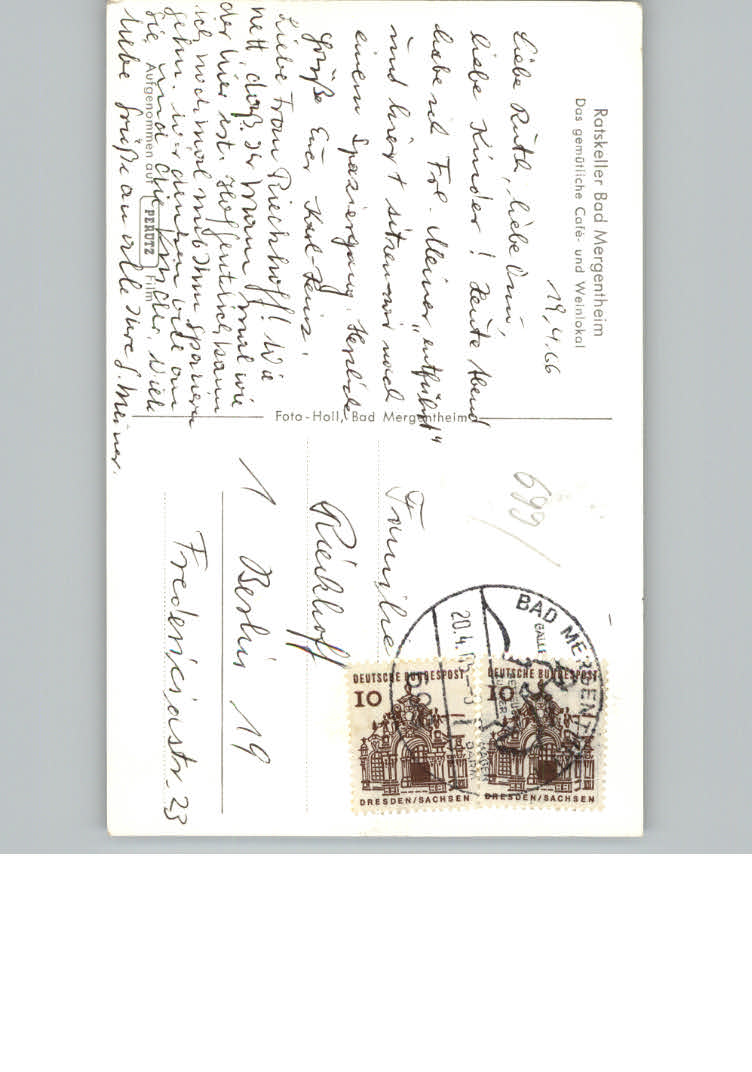 Ratskeller Bad Mergentheim
Das gemütliche Café- und Weinlokal
19.4.66
Liebe Ruth, liebe
liebe Kinder! Heute Abend
habe ich Frl. Meiner "entführt"
und hier sitzen wir nach
einem Spaziergang. Herzliche
Grüße Euer Karl-Heinz.
Liebe Frau Rieckhoff! Wie
nett daß Ihr Mann mal wie
der hier ist. Hoffentlich kann
ich noch mal mit Ihm spazieren
gehn. Wir denken viel an
Sie und die Kinder. Viele
liebe Grüße an alle Ihre G. Meiner.
Aufgenommen auf PERUTZ Film
Foto-Holl, Bad Mergentheim
699
Familie
Rieckhoff
1 Berlin 19
Fredericiastr. 23
BAD MERGENTHEIM
20.4.
DEUTSCHE BUNDESPOST
10
DRESDEN/SACHSEN
DEUTSCHE BUNDESPOST
10
DRESDEN/SACHSEN